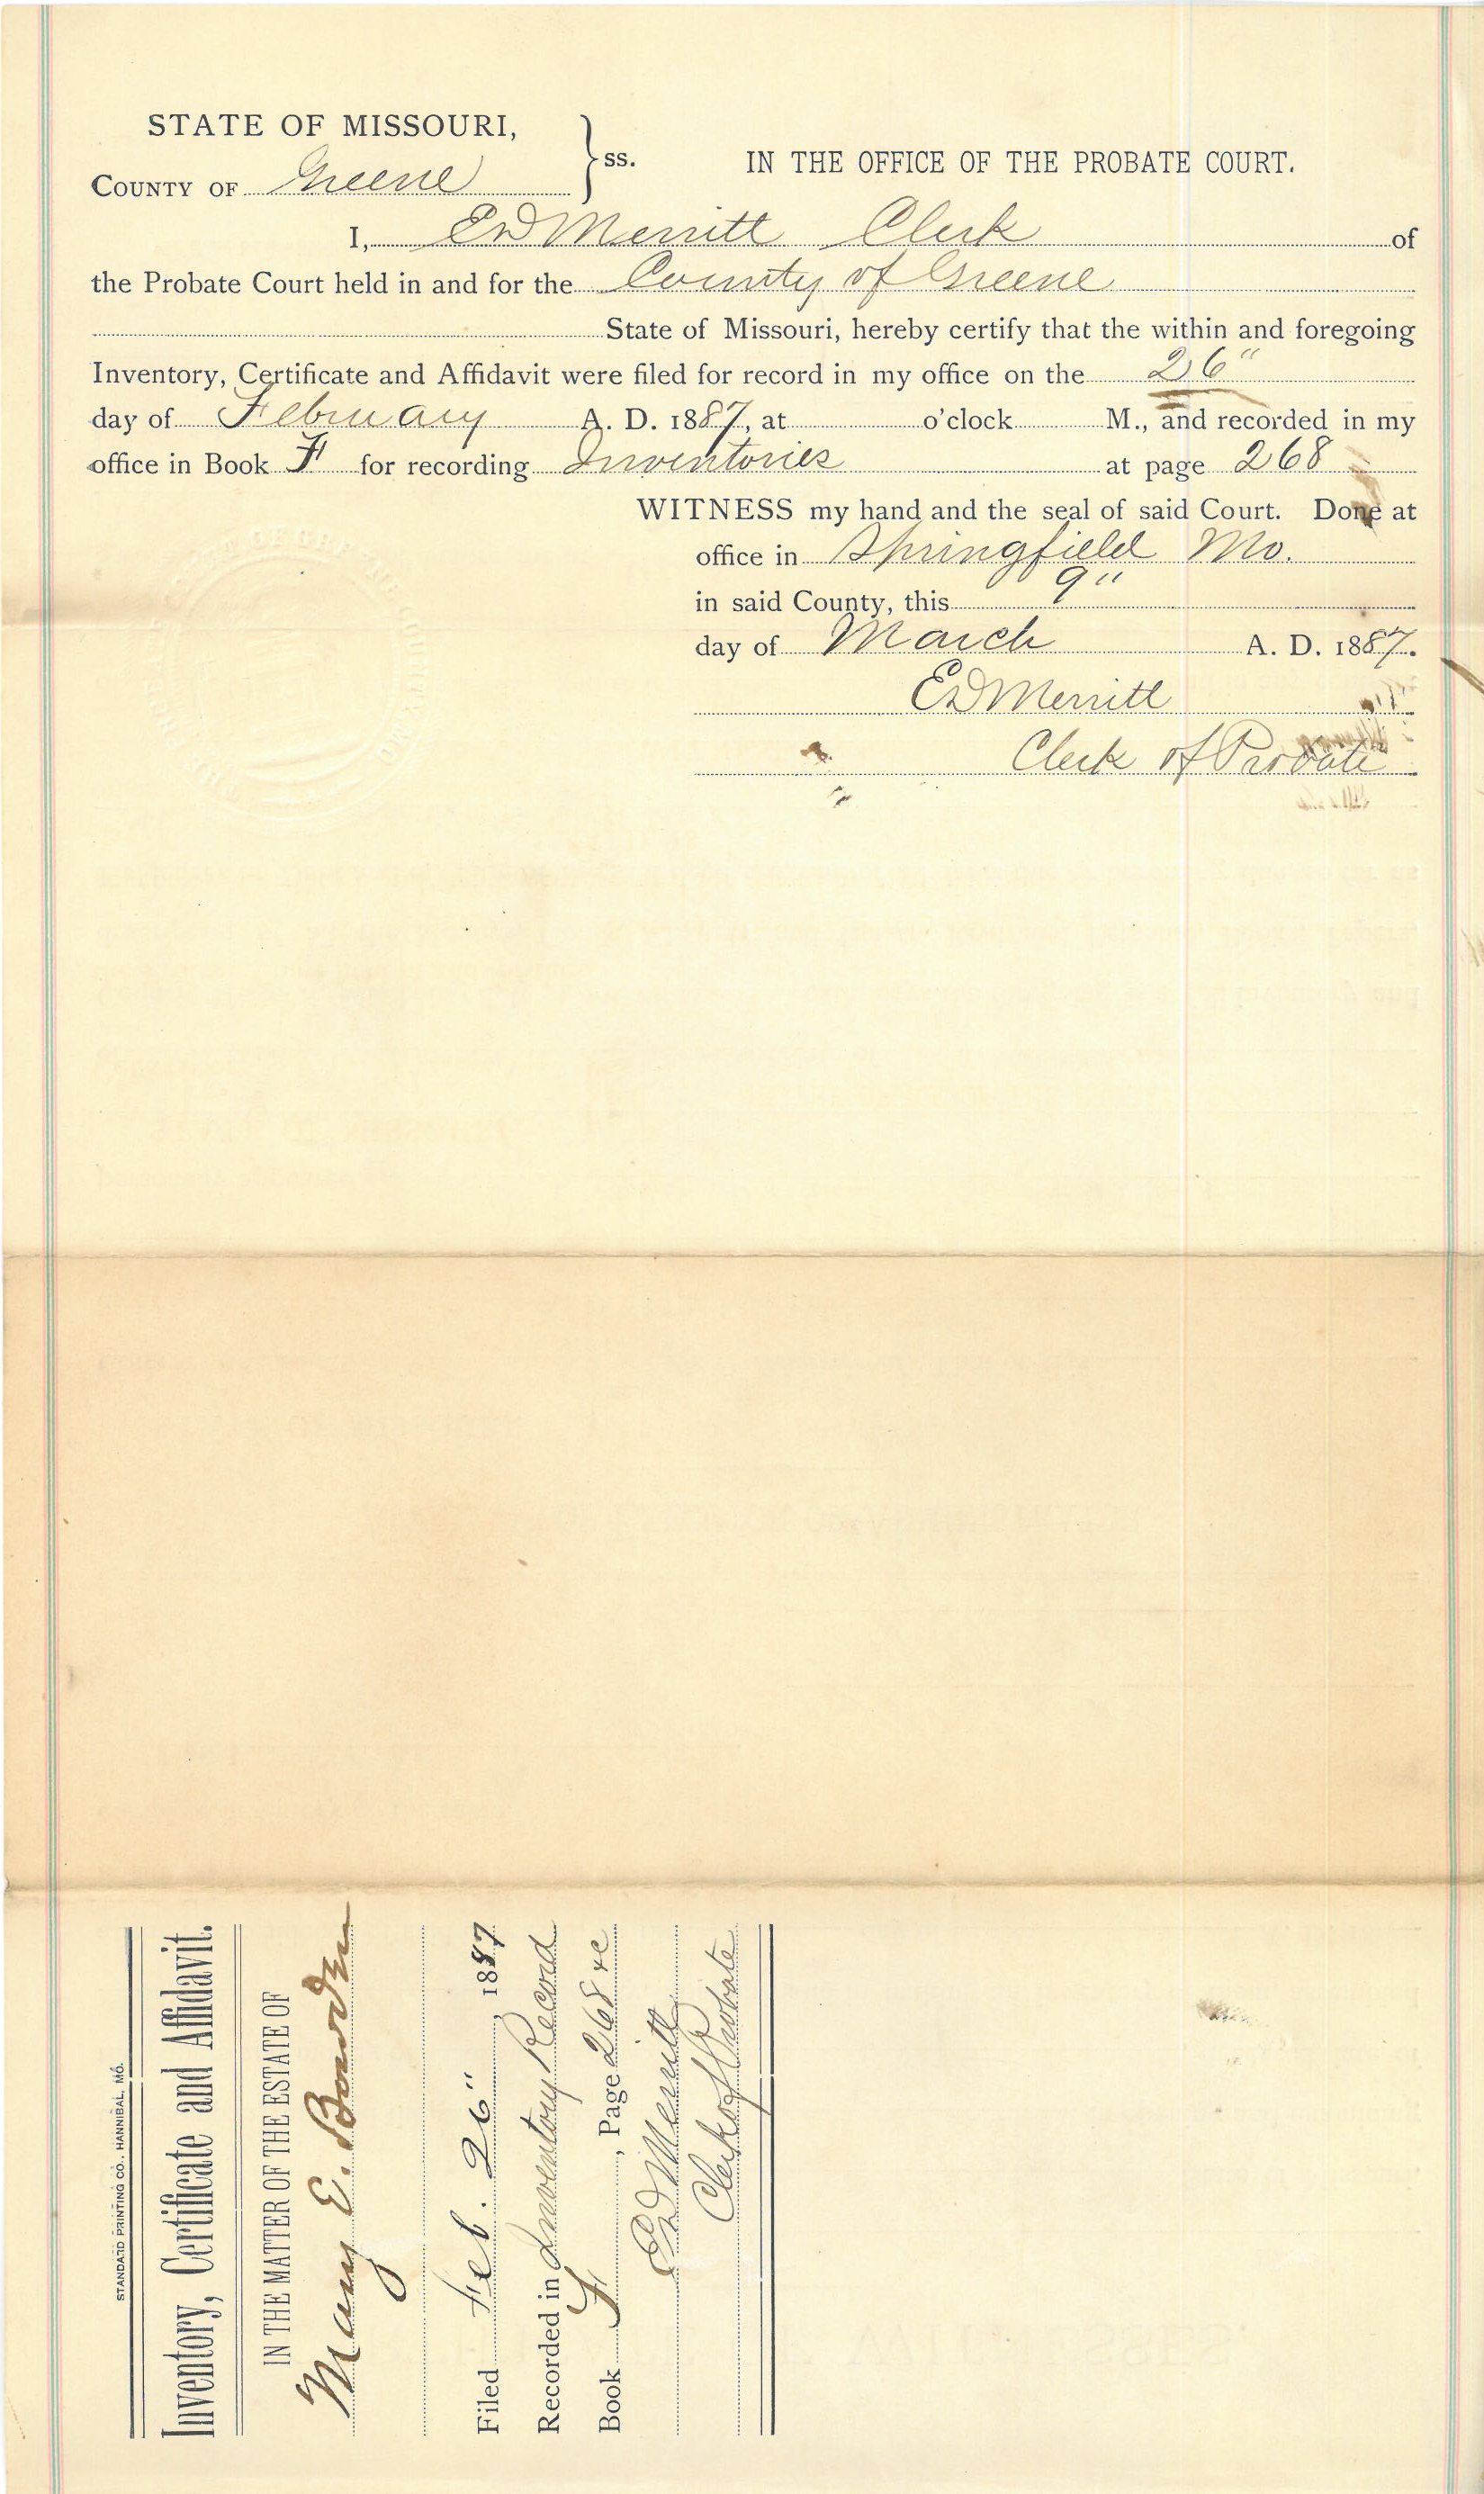 STATE OF MISSOURI,
COUNTY OF Greene } ss. IN THE OFFICE OF THE PROBATE COURT.
I, ED Merritt Clerk of
the Probate Court held in and for the County of Greene
State of Missouri, hereby certify that the within and foregoing
Inventory, Certificate and Affidavit were filed for record in my office on the 26"
day of February A. D. 1887, at o'clock M., and recorded in my
office in Book F for recording Inventories at page 268
WITNESS my hand and the seal of said Court. Done at
office in Springfield Mo.
in said County, this 9"
day of March A. D. 1887.
ED Merritt
Clerk of Probate
STANDARD PRINTING CO., HANNIBAL, MO.
Inventory, Certificate and Affidavit.
IN THE MATTER OF THE ESTATE OF
Mary E. Bowden
Filed Feb. 26", 1887
Recorded in Inventory Record
Book F, Page 268 &c
ED Merritt
Clerk of Probate